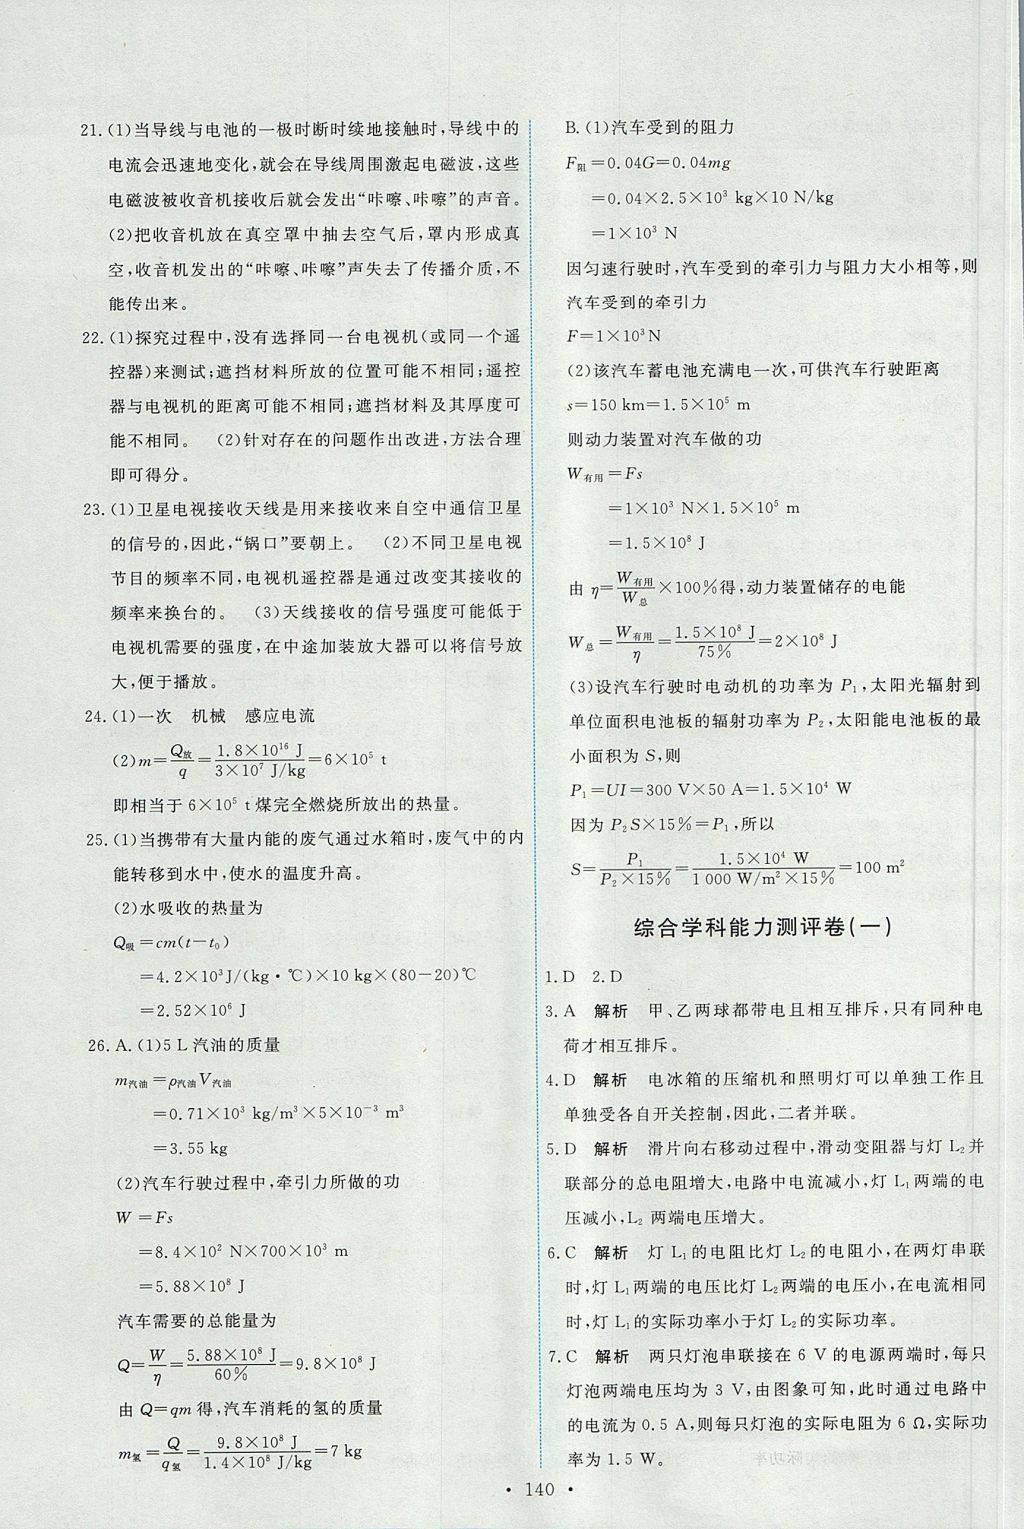 21.(1)当导线与电池的一极时断时续地接触时,导线中的
电流会迅速地变化,就会在导线周围激起电磁波,这些
电磁波被收音机接收后就会发出“咔嚓、咔嚓”的声音。
(2)把收音机放在真空罩中抽去空气后,罩内形成真
空,收音机发出的“咔嚓、咔嚓”声失去了传播介质,不
能传出来。
22.(1)探究过程中,没有选择同一台电视机(或同一个遥
控器)来测试;遮挡材料所放的位置可能不相同;遥控
器与电视机的距离可能不相同;遮挡材料及其厚度可
能不相同。 (2)针对存在的问题作出改进,方法合理
即可得分。
23.(1)卫星电视接收天线是用来接收来自空中通信卫星
的信号的,因此,“锅口”要朝上。 (2)不同卫星电视
节目的频率不同,电视机遥控器是通过改变其接收的
频率来换台的。 (3)天线接收的信号强度可能低于
电视机需要的强度,在中途加装放大器可以将信号放
大,便于播放。
24.(1)一次 机械 感应电流
(2)m=Q放/q=1.8×10¹⁶ J/3×10⁷ J/kg=6×10⁵ t
即相当于 6×10⁵ t 煤完全燃烧所放出的热量。
25.(1)当携带有大量内能的废气通过水箱时,废气中的内
能转移到水中,使水的温度升高。
(2)水吸收的热量为
Q吸=cm(t-t₀)
=4.2×10³J/(kg·℃)×10 kg×(80-20)℃
=2.52×10⁶ J
26.A.(1)5 L 汽油的质量
m汽油=ρ汽油V汽油
=0.71×10³ kg/m³×5×10⁻³ m³
=3.55 kg
(2)汽车行驶过程中,牵引力所做的功
W=Fs
=8.4×10² N×700×10³ m
=5.88×10⁸ J
汽车需要的总能量为
Q=W/η=5.88×10⁸ J/60%=9.8×10⁸ J
由 Q=qm 得,汽车消耗的氢的质量
m氢=Q/q氢=9.8×10⁸ J/1.4×10⁸ J/kg=7 kg
B.(1)汽车受到的阻力
F阻=0.04G=0.04mg
=0.04×2.5×10³ kg×10 N/kg
=1×10³ N
因匀速行驶时,汽车受到的牵引力与阻力大小相等,则
汽车受到的牵引力
F=1×10³N
(2)该汽车蓄电池充满电一次,可供汽车行驶距离
s=150 km=1.5×10⁵ m
则动力装置对汽车做的功
W有用=Fs
=1×10³ N×1.5×10⁵ m
=1.5×10⁸ J
由 η=W有用/W总×100%得,动力装置储存的电能
W总=W有用/η=1.5×10⁸ J/75%=2×10⁸ J
(3)设汽车行驶时电动机的功率为 P₁,太阳光辐射到
单位面积电池板的辐射功率为 P₂,太阳能电池板的最
小面积为 S,则
P₁=UI=300 V×50 A=1.5×10⁴ W
因为 P₂S×15%=P₁,所以
S=P₁/P₂×15%=1.5×10⁴ W/1 000 W/m²×15%=100 m²
综合学科能力测评卷(一)
1.D 2.D
3.A 解析 甲、乙两球都带电且相互排斥,只有同种电
荷才相互排斥。
4.D 解析 电冰箱的压缩机和照明灯可以单独工作且
单独受各自开关控制,因此,二者并联。
5.D 解析 滑片向右移动过程中,滑动变阻器与灯 L₂并
联部分的总电阻增大,电路中电流减小,灯 L₁两端的电
压减小,L₂ 两端电压增大。
6.C 解析 灯 L₁的电阻比灯 L₂的电阻小,在两灯串联
时,灯 L₁两端的电压比灯 L₂两端的电压小,在电流相同
时,灯 L₁的实际功率小于灯 L₂的实际功率。
7.C 解析 两只灯泡串联接在 6 V 的电源两端时,每只
灯泡两端电压均为 3 V,由图象可知,此时通过电路中
的电流为 0.5 A,则每只灯泡的实际电阻为 6 Ω,实际功
率为 1.5 W。
· 140 ·